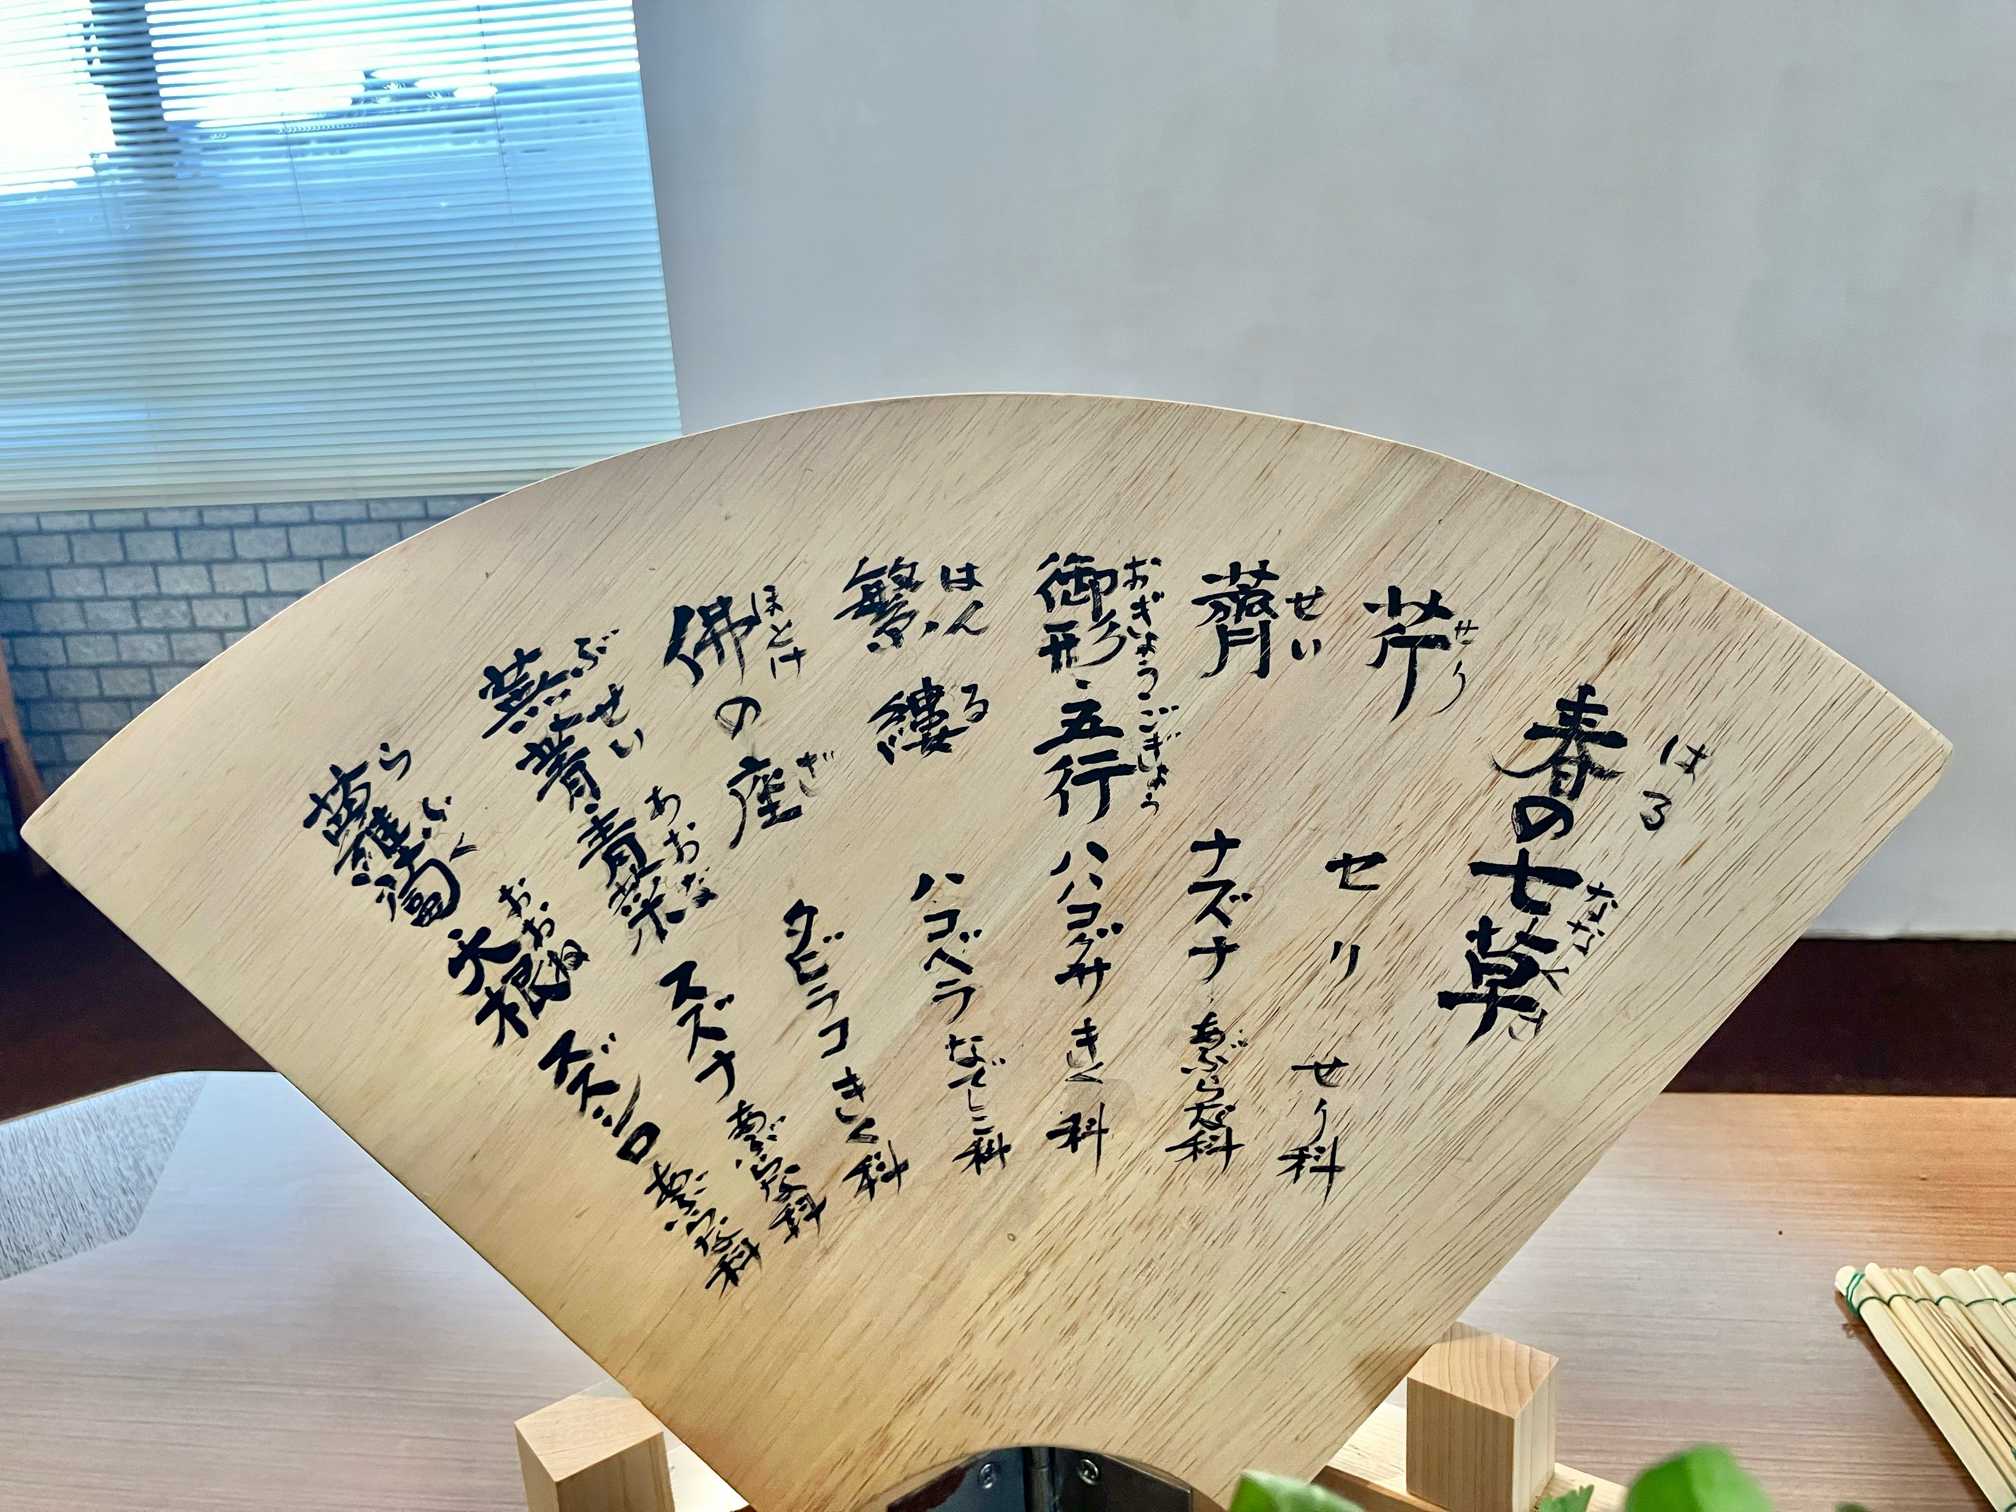 春の七草 はる ななくさ
芹 せり セリ せり科
薺 せい ナズナ あぶらな科
御形・五行 おぎょうごぎょう ハハコグサ きく科
繁縷 はんる ハコベラ なでしこ科
佛の座 ほとけ ざ タビラコ きく科
蕪菁・青菜 ぶせい あおな スズナ あぶらな科
蘿蔔 らふく 大根 おおね スズシロ あぶらな科